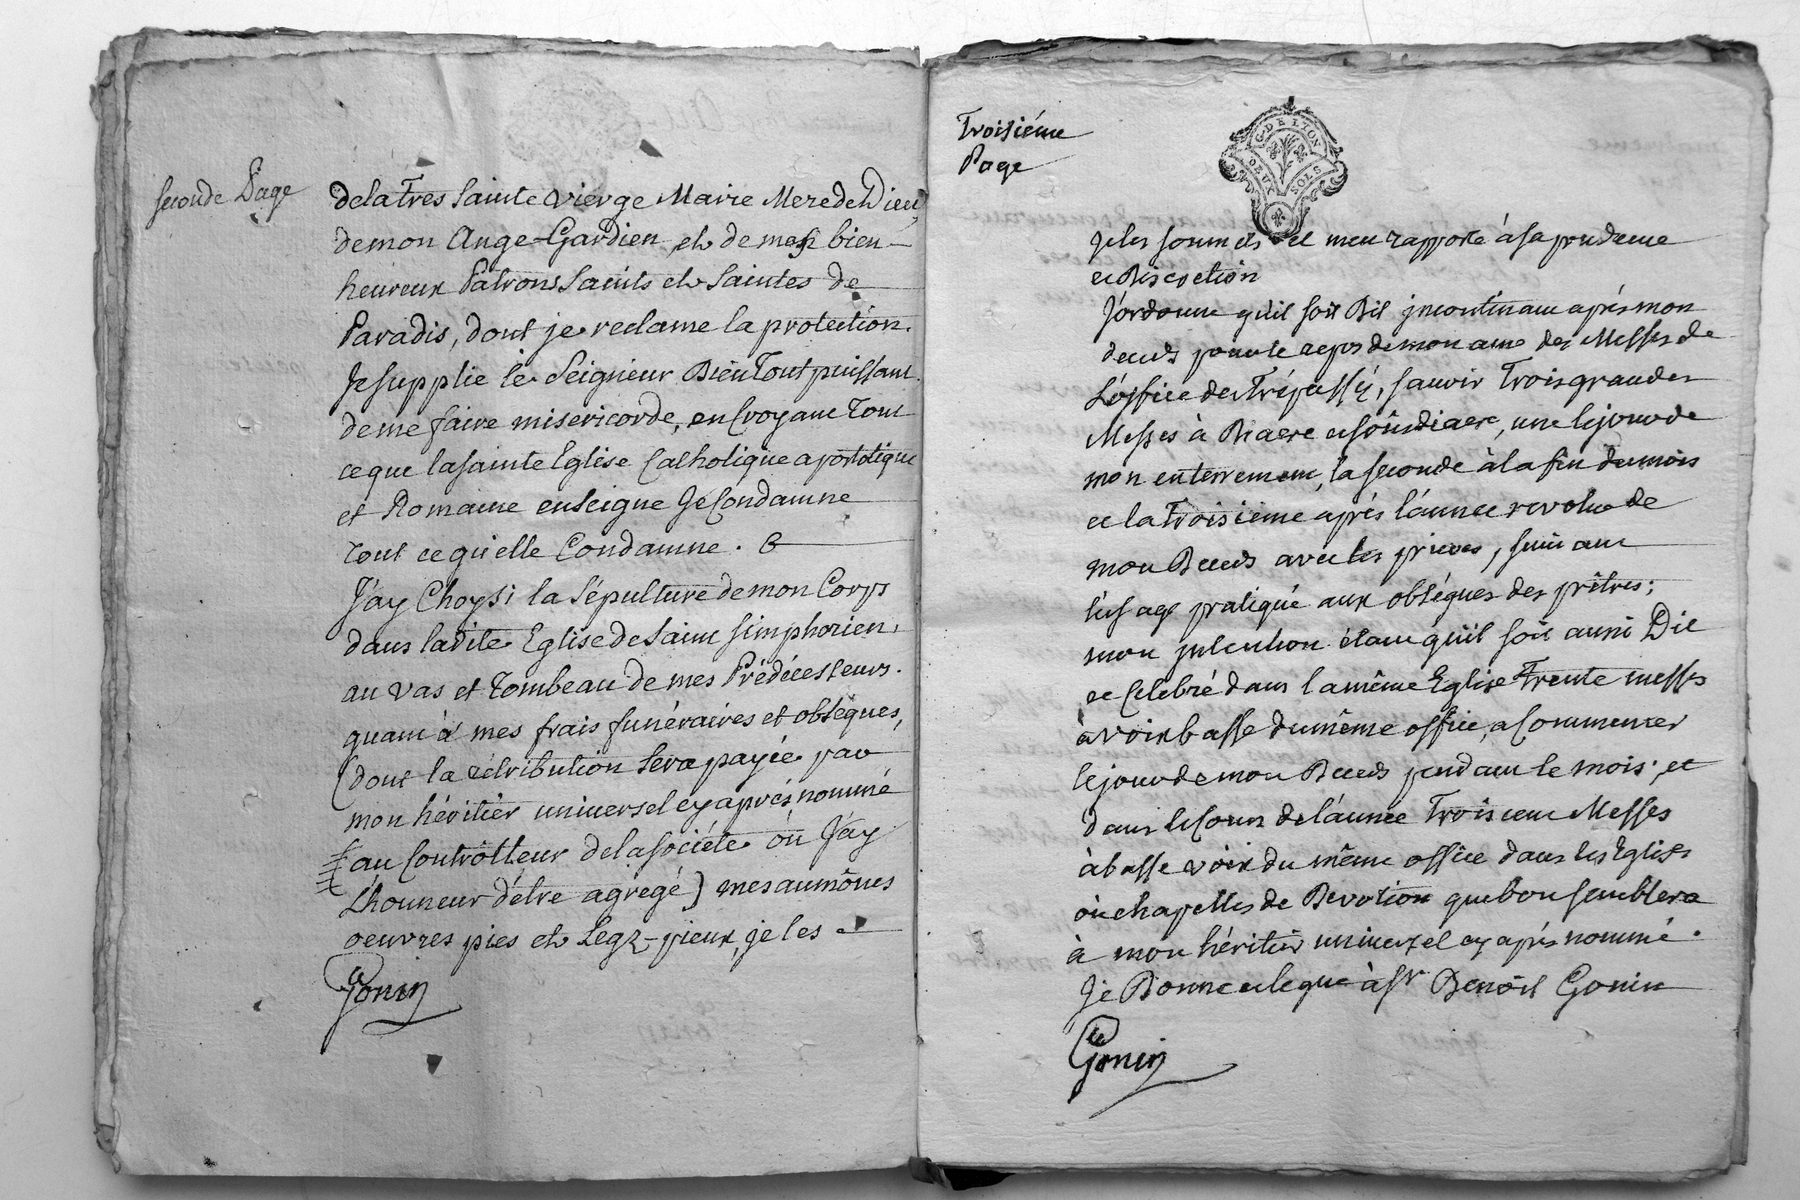 seconde Page
de la Tres Sainte Vierge Marie Mere de Dieu,
de mon Ange-Gardien et de mes bien-
heureux Patrons Saints et Saintes de
Paradis, dont je reclame la protection.
Je supplie le Seigneur Dieu Tout puissant
de me faire misericorde, en Croyant Tout
ce que la sainte Eglise Catholique apostolique
et Romaine enseigne Je Condamne
tout ce qu'elle Condamne.
J'ay Choysi la Sépulture de mon Corps
dans ladite Eglise de Saint simphorien,
au vas et Tombeau de mes Prédécesseurs.
quant à mes frais funéraires et obséques,
(dont la rétribution sera payée par
mon héritier universel cy après nommé
au Controlleur de la société où J'ay
L'honneur d'être agrégé) mes aumônes
oeuvres pies et Legz-pieux, je les
Gonin
Troisiéme
Page
G. DE LYON
DEUX SOLS
Je les soumets et m'en rapporte à sa prudence
et Discretion
J'ordonne qu'il soit Dit incontinant après mon
deceds pour le repos de mon ame des Messes de
L'office des Trépassés, sauoir Trois grandes
Messes à Diacre et soûsdiacre, une le jour de
mon enterrement, la seconde à la fin du mois
et la Troisieme après l'année revolue de
mon Deceds avec les prieres, suiuant
l'usage pratiqué aux obséques des prêtres;
mon intention étant qu'il soit aussi Dit
et Celebré dans la même Eglise Trente messes
à voix basse du même office, a Commencer
le jour de mon Deceds pendant le mois; et
dans le Cours de l'année Trois cent Messes
à basse voix du même office dans les Eglises
ou chapelles de Devotion que bon semblera
à mon héritier universel cy après nommé.
Je Donne et legue à Sr Benoit Gonin
Gonin